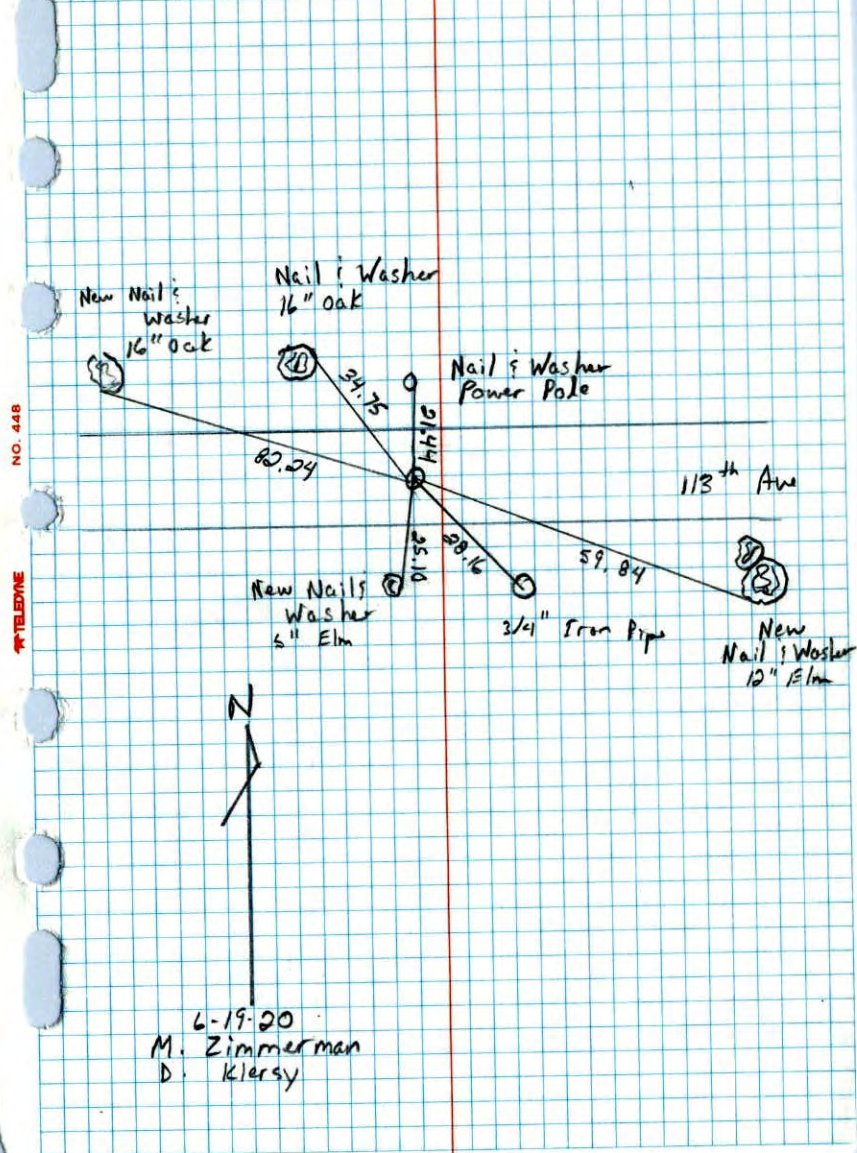 New Nail &
Washer
16" Oak
Nail & Washer
16" Oak
Nail & Washer
Power Pole
34.75
21.44
82.24
113th Ave
25.10
28.16
59.84
New Nail &
Washer
Elm
3/4" Iron Pipe
New
Nail & Washer
12" Elm
N
6-19-20
M. Zimmerman
D. Klersy
NO. 448
TELEDYNE